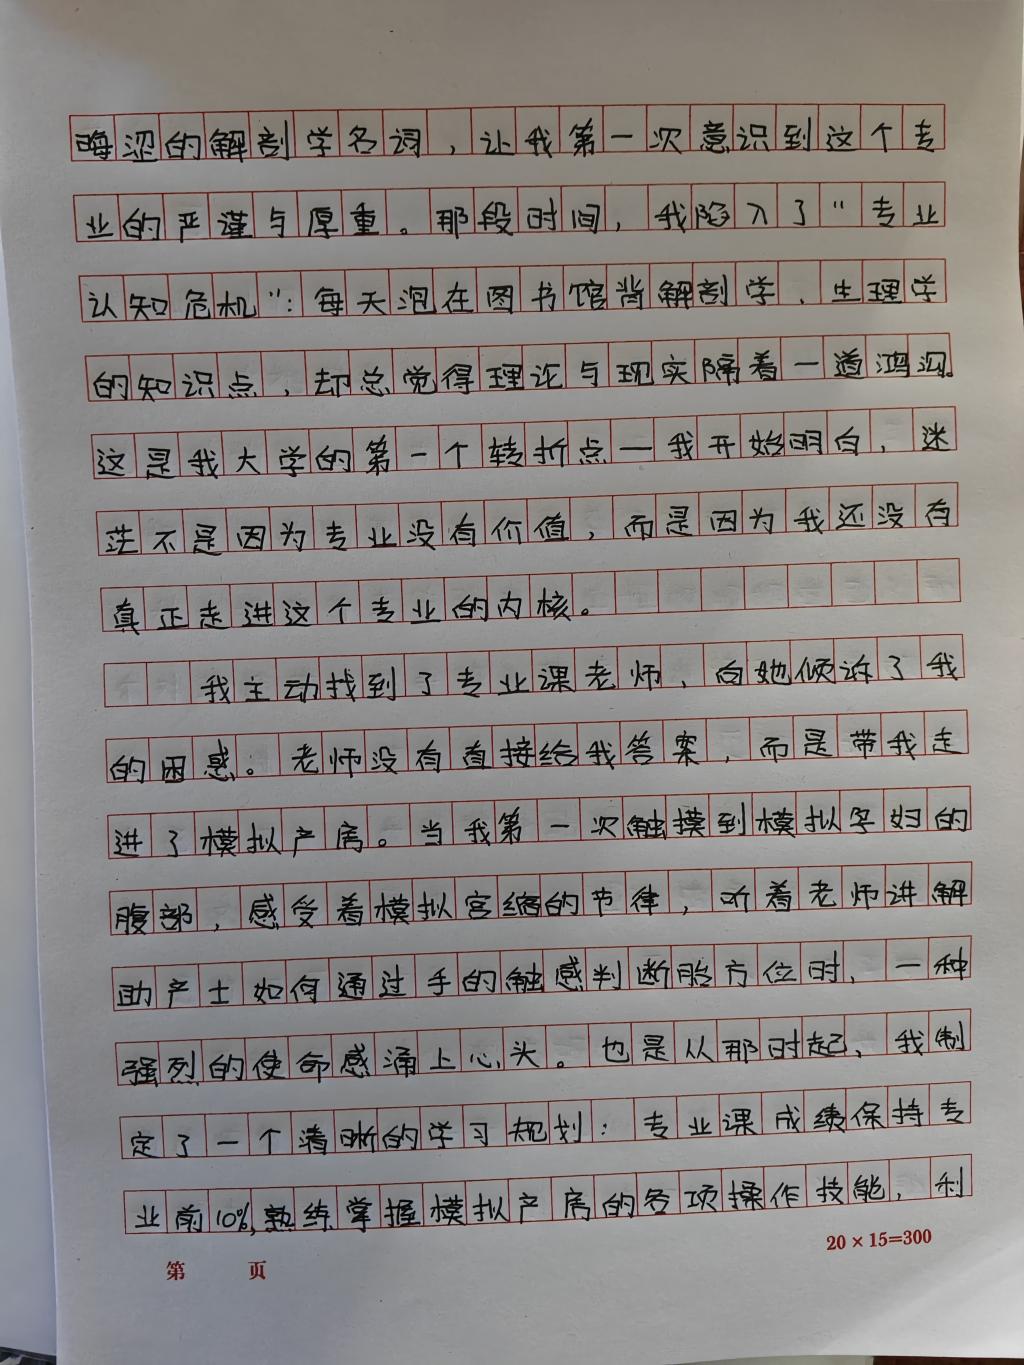 晦涩的解剖学名词，让我第一次意识到这个专
业的严谨与厚重。那段时间，我陷入了“专业
认知危机”：每天泡在图书馆背解剖学、生理学
的知识点，却总觉得理论与现实隔着一道鸿沟。
这是我大学的第一个转折点—我开始明白，迷
茫不是因为专业没有价值，而是因为我还没有
真正走进这个专业的内核。
我主动找到了专业课老师，向她倾诉了我
的困惑。老师没有直接给我答案，而是带我走
进了模拟产房。当我第一次触摸到模拟孕妇的
腹部，感受着模拟宫缩的节律，听着老师讲解
助产士如何通过手的触感判断胎方位时，一种
强烈的使命感涌上心头。也是从那时起，我制
定了一个清晰的学习规划：专业课成绩保持专
业前10%，熟练掌握模拟产房的各项操作技能，利
第 页
20×15=300